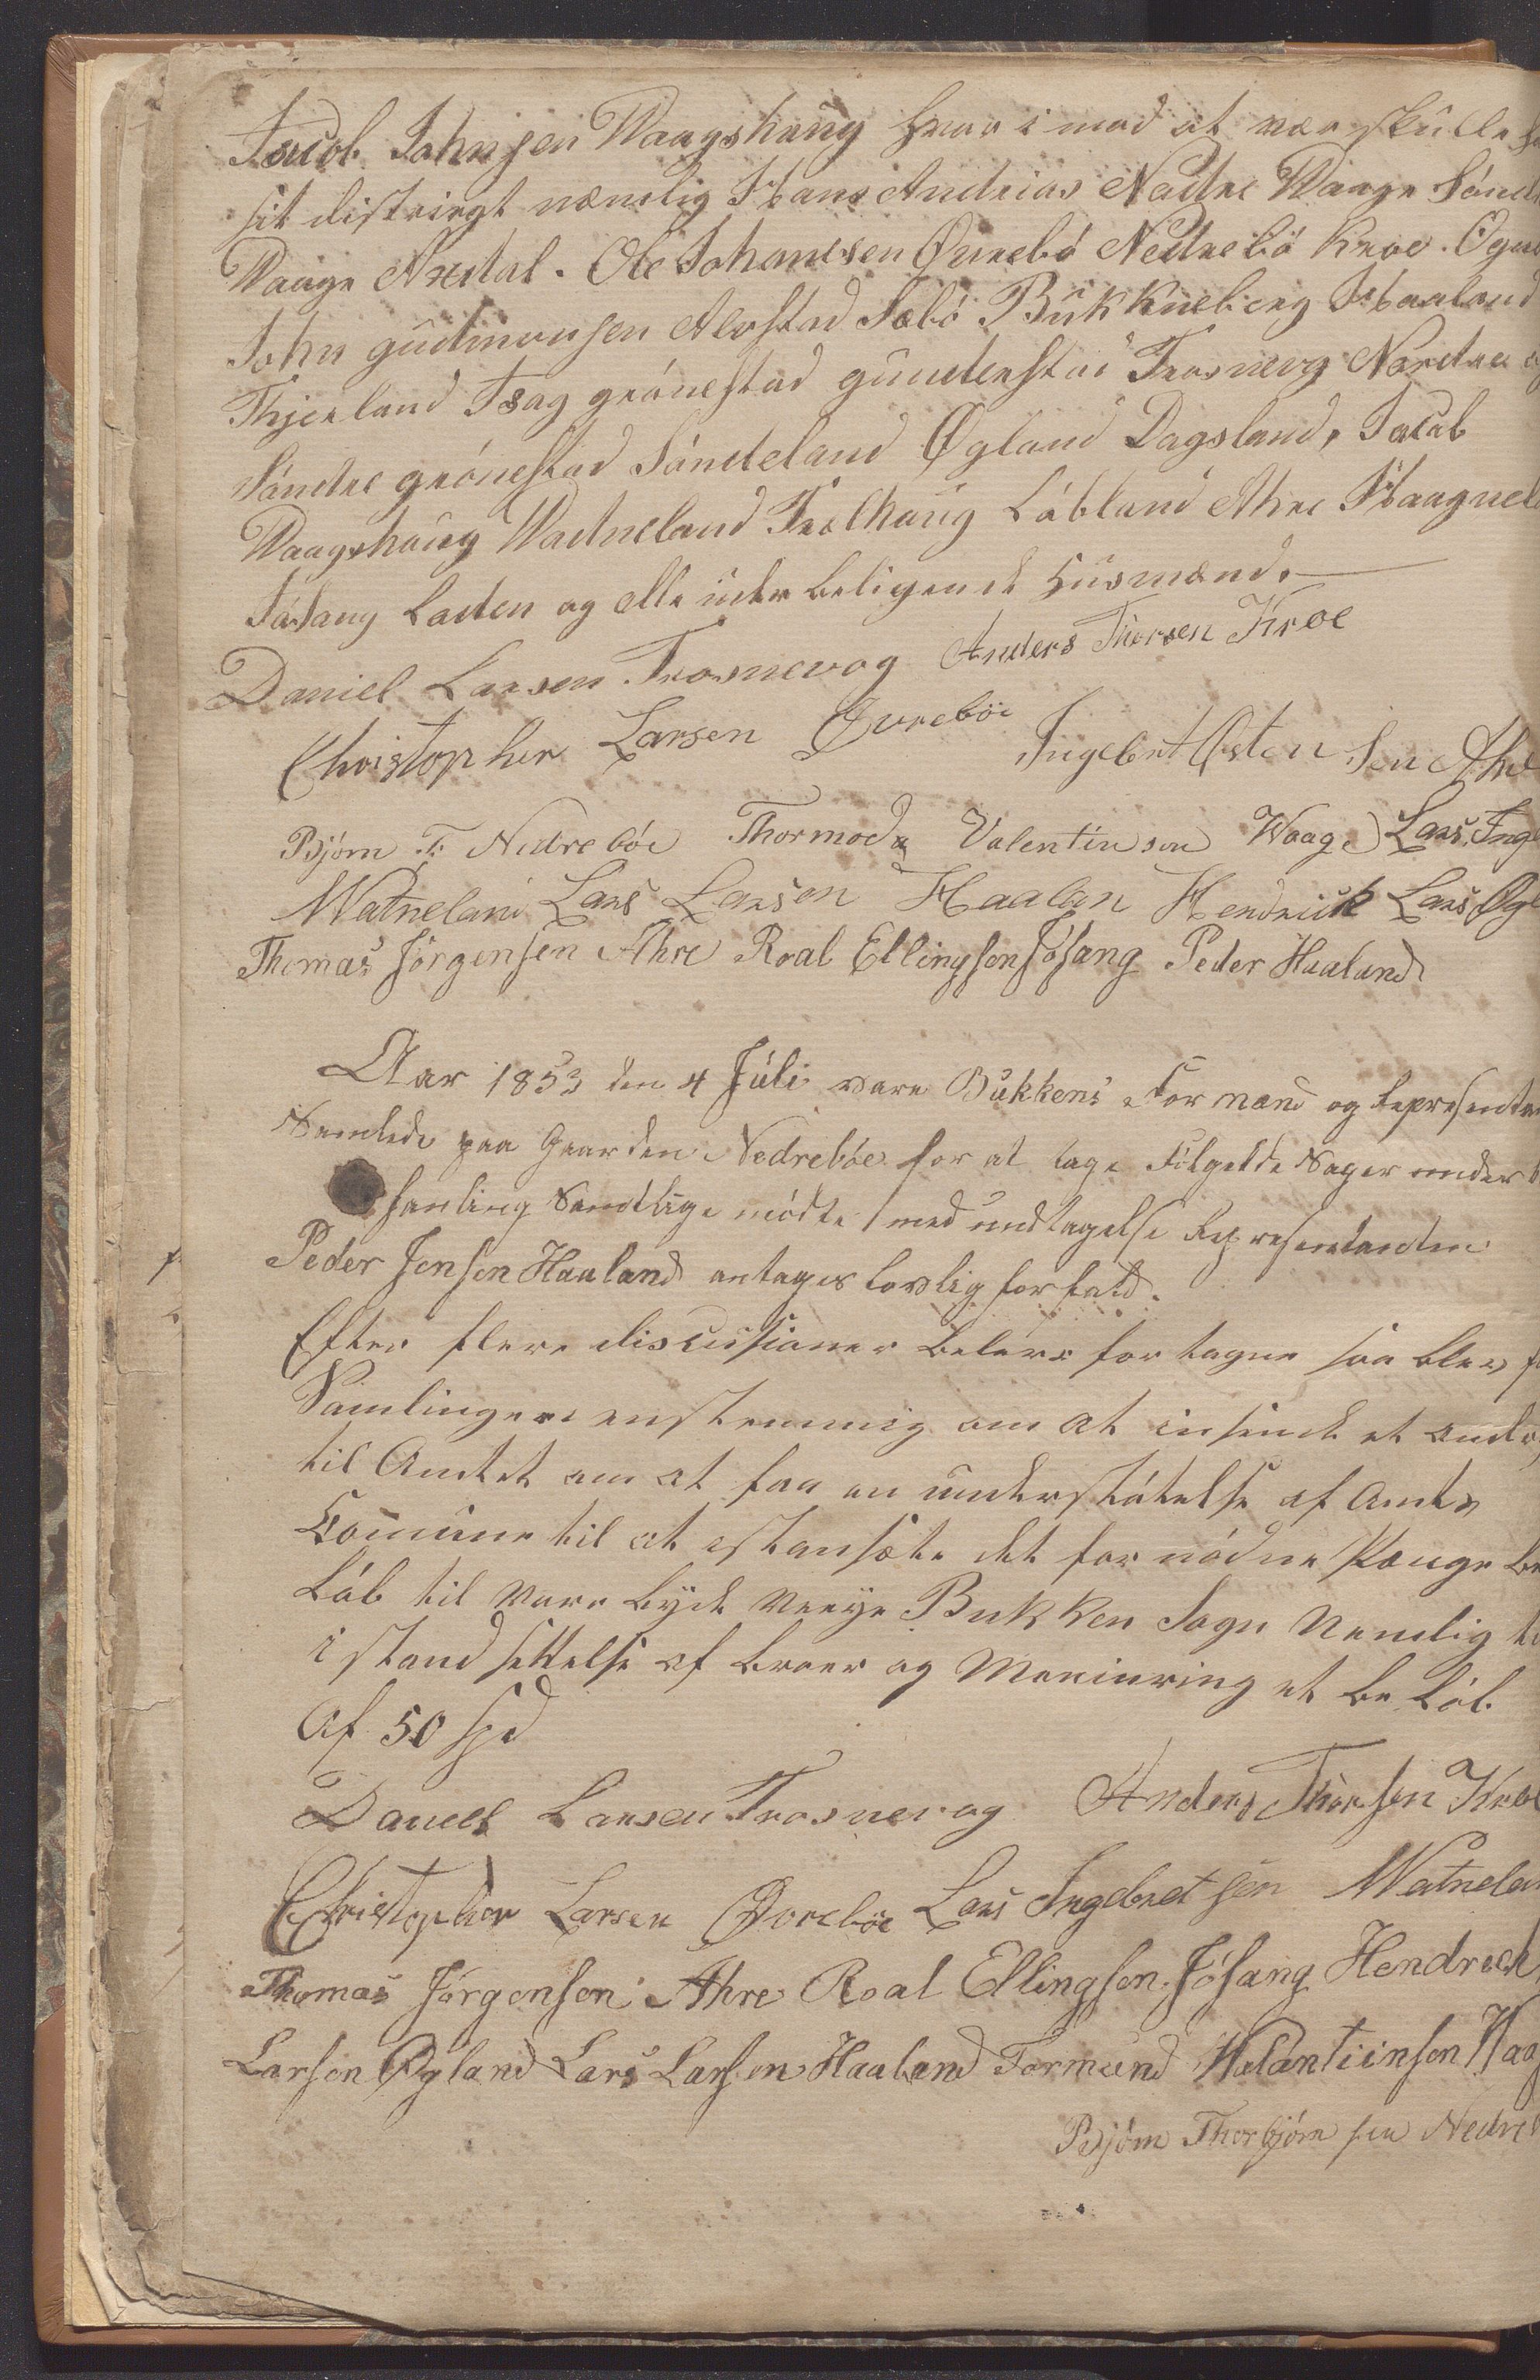 Jacob Johnsen Waagshaug hver i mod at vær skulle
sit distrirgt nemlig Hans Andreas Nedre Waage Sönd
Waage Aredal. Ole Johannesen Øvrebö Nedrebö Kroe. Ogna
John gudmunsen Alvestad Sæbö Bukkneberg Haaland
Thjerland Isag grönestad gunderstad Trosnevog Nordre og
Söndre grönestad Söndeland Øgland Dagsland, Jacob
Waagshaug Watneland Trolhaug Löbland Ahre Haagnel
Jösang Laden og alle underbeligende Husmænd.
Daniel Larsen Trosnevag Anders Thorsen Kroe
Christopher Larsen Øvreböe
Ingebrt Østensen Ahre
Bjórn T. Nedrebóe Thormod Valentinsen Waage Lars Inge
Watneland Lars Larsen Haalan Hendrick Lars Øgl
Thomas Jörgensen Ahre Roal Ellingsen Jösang Peder Haaland
Aar 1853 den 4 Júli vare Bukkens Formænd og Representan
Samlede paa Gaarden Nedrebóe for at tage Fölgelde Sager under
hanling Samtlige mödte med undtagelse Representanten
Peder Jensen Haaland antages lovlig forfald.
Efter flere discusioner beleve fortagne saa blev f
Samlingen enstemmig om at insende et ande
til Amtet om at faa en understötelse af Amts
Comune til at istansæte det for nödne Penge be
Löb til vare bÿde Veeÿe Bukken Sogn Nemlig ti
istandsettelse af broer og Meniering et be Löb
Af 50 spd
Daniel Larsen Trosnevog Anders Thorsen Kroe
Christopher Larsen Øvreböe Lars Ingebretsen Watnelan
Thomas Jörgensen Ahre Roal Ellingsen Jösang Hendrech
Larsen Øgland Lars Larsen Haaland Tormund Walantiinsen Waag
Bjórn Thorbjórnsen Nedreb